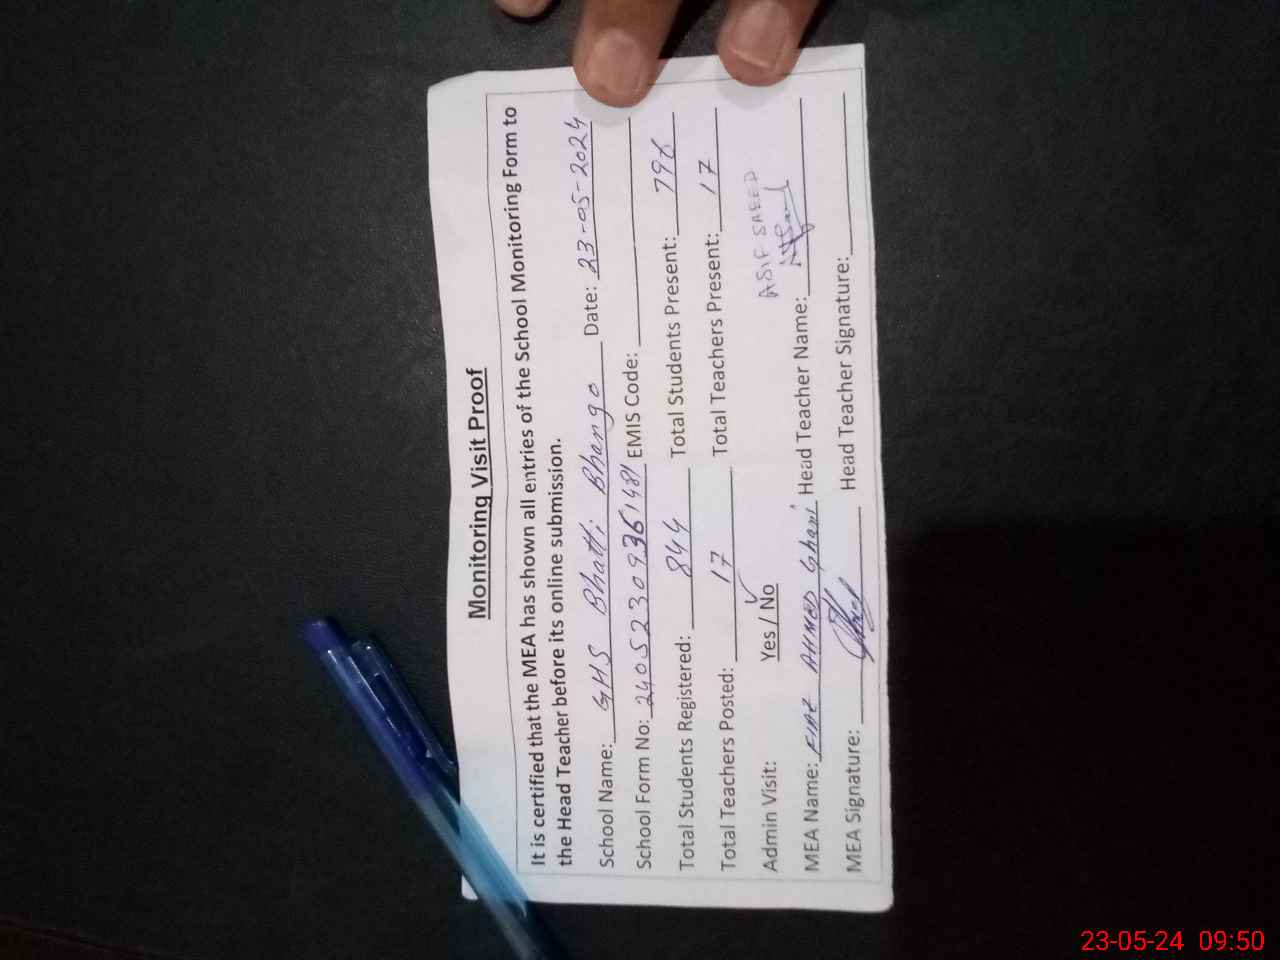 Monitoring Visit Proof
It is certified that the MEA has shown all entries of the School Monitoring Form to
the Head Teacher before its online submission.
School Name: GHS Bhatti Bhango Date: 23-05-2024
School Form No: 24052309361481 EMIS Code:
Total Students Registered: 844 Total Students Present: 796
Total Teachers Posted: 17 Total Teachers Present: 17
Admin Visit: Yes / No ✓
ASIF SAEED
MEA Name: FIAZ AHMED Ghani Head Teacher Name:
MEA Signature: Head Teacher Signature:
23-05-24 09:50